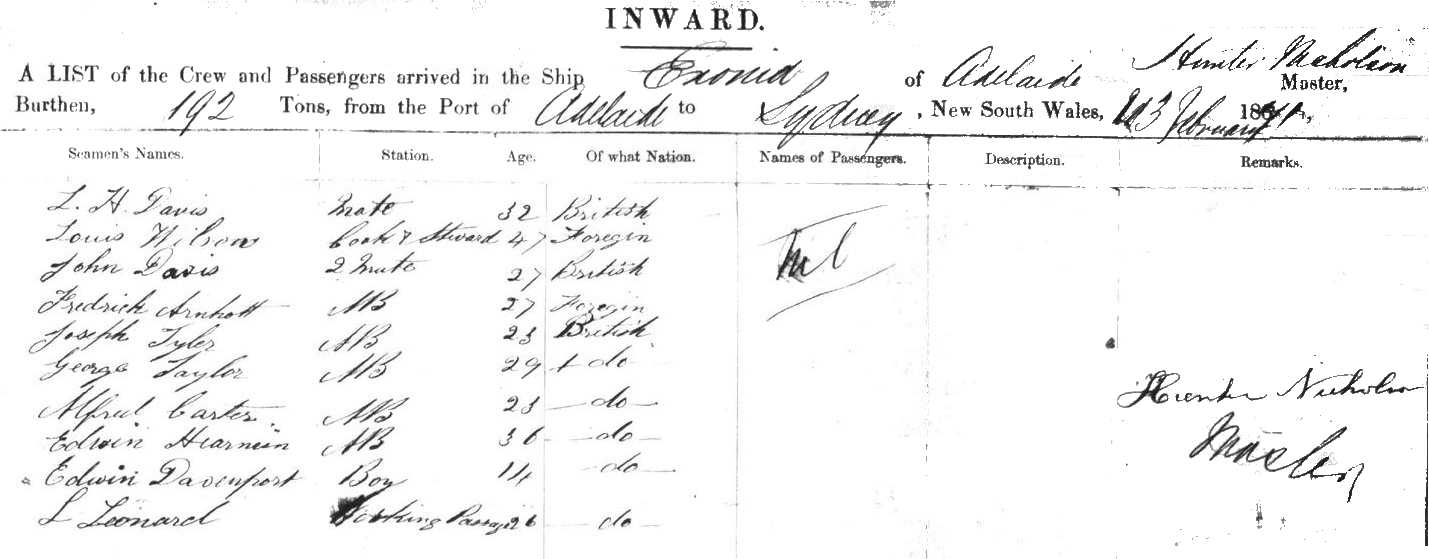 INWARD.
A LIST of the Crew and Passengers arrived in the Ship, of Adelaide Hunter Nicholson Master,
Burthen, 192 Tons, from the Port of Adelaide to Sydney, New South Wales, February 18
Seamen's Names. Station. Age. Of what Nation. Names of Passengers. Description. Remarks.
L. H. Davis Mate 32 British
Louis Wilson Cook & Steward 47 Foregin
John Davis 2 Mate 27 British
Nil
Fredrick Arnhott AB 27 Foregin
Joseph Tyler AB 23 British
George Taylor AB 29 + do
Alfred Carter. AB 23 — do —
Hunter Nicholson
Edwin AB 36 — do —
Master
Edwin Davenport Boy 14 — do —
L Leonard Working Passage 26 — do —